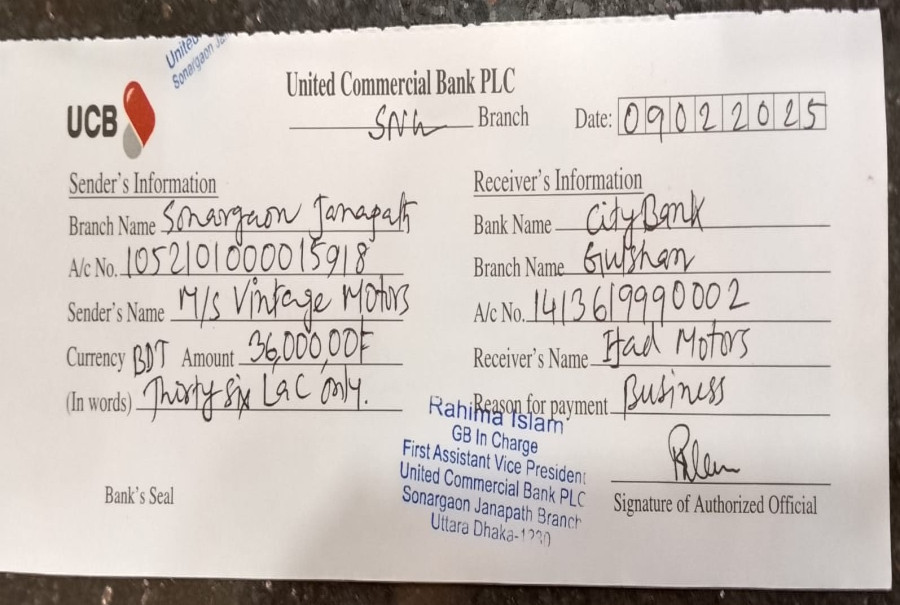 United
Sonargaon Ja
UCB
United Commercial Bank PLC
Branch
Date: 09022025
Sender's Information
Branch Name Sonargaon Janapath
A/c No. 1052101000015918
Sender's Name M/s Vintage Motors
Currency BDT Amount 36,000,00F
(In words) Thirty six Lac only.
Bank's Seal
Receiver's Information
Bank Name City Bank
Branch Name Gulshan
A/c No. 1413619990002
Receiver's Name Ifad Motors
Reason for payment Business
Rahima Islam
GB In Charge
First Assistant Vice President
United Commercial Bank PLC
Sonargaon Janapath Branch
Uttara Dhaka-1230
Signature of Authorized Official